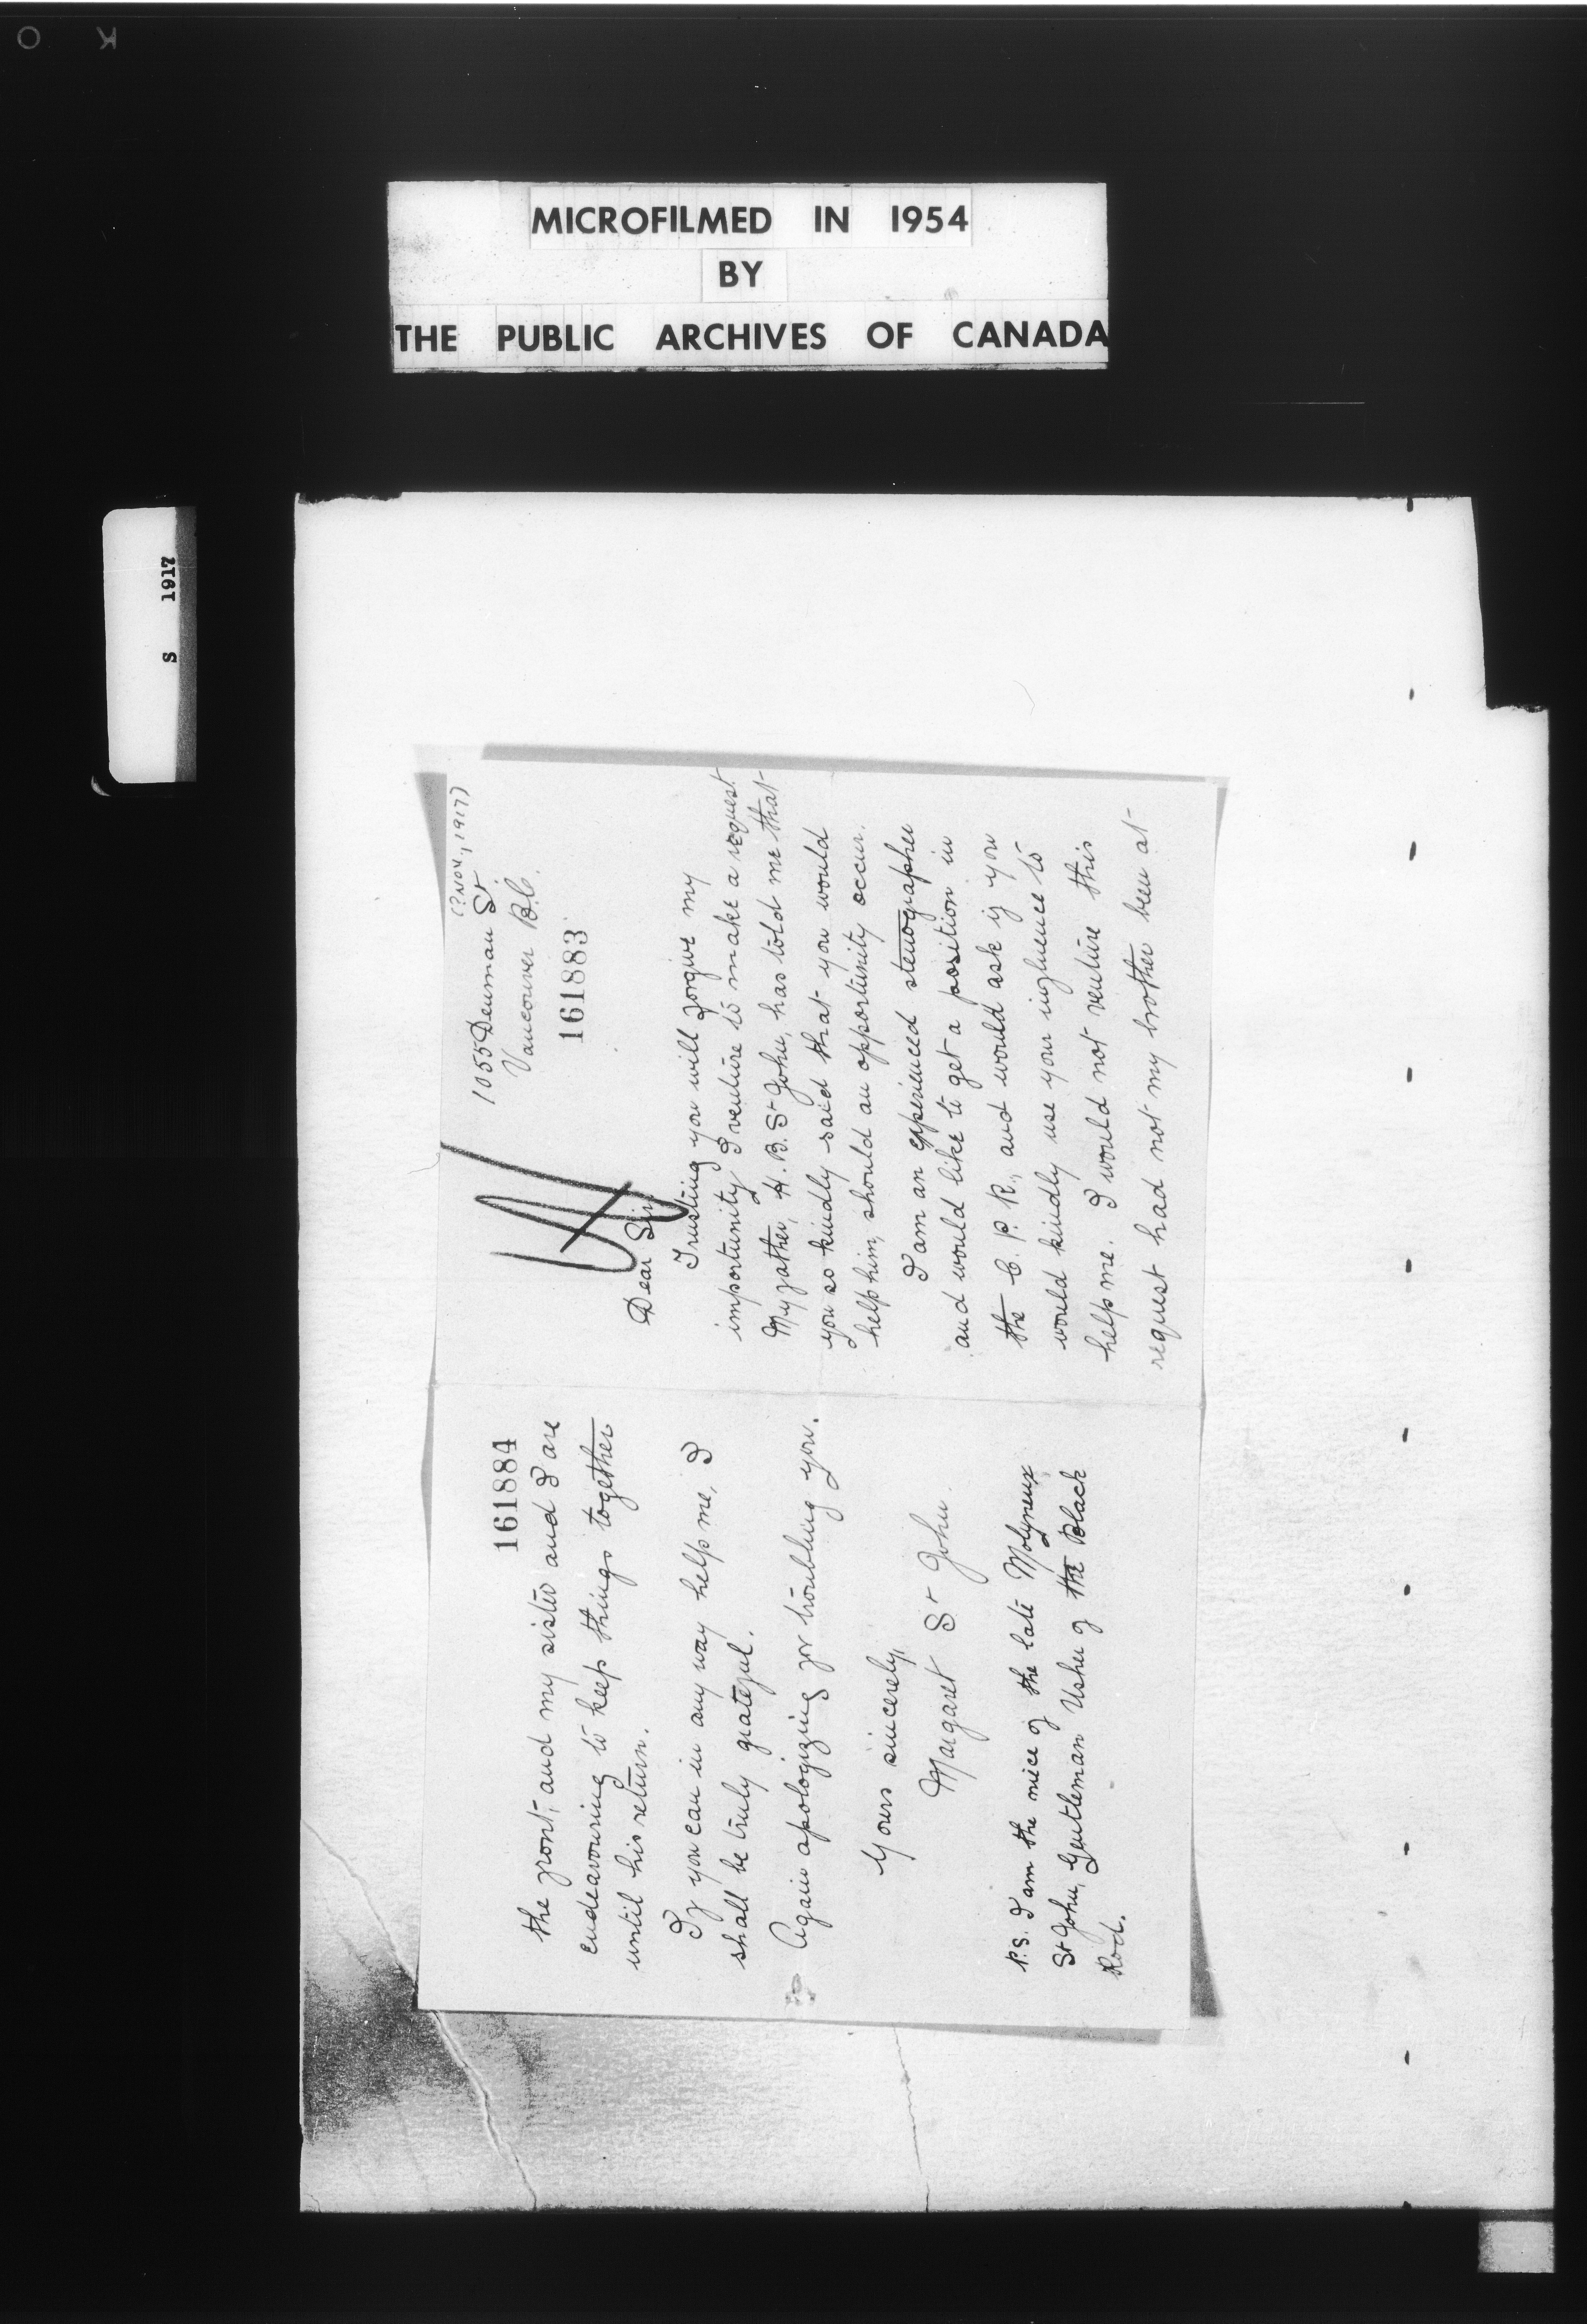 MICROFILMED IN 1954
BY
THE PUBLIC ARCHIVES OF CANADA
S 1917
(?Nov., 1917)
1055 Denman St.
Vancouver B.C.
161883
Dear Sir,
Trusting you will forgive my
importunity I venture to make a request
My father, H.B. St John, has told me that
you so kindly said that you would
help him, should an opportunity occur.
I am an experienced stenographer
and would like to get a position in
the C. P. R., and would ask if you
would kindly use your influence to
help me. I would not venture this
request had not my brother been at
161884
the front, and my sister and I are
endeavouring to keep things together
until his return.
If you can in any way help me, I
shall be truly grateful.
Again apologizing for troubling you.
Yours sincerely,
Margaret St John.
P.S. I am the niece of the late Molyneux
St John, Gentleman Usher of the Black
Rod.